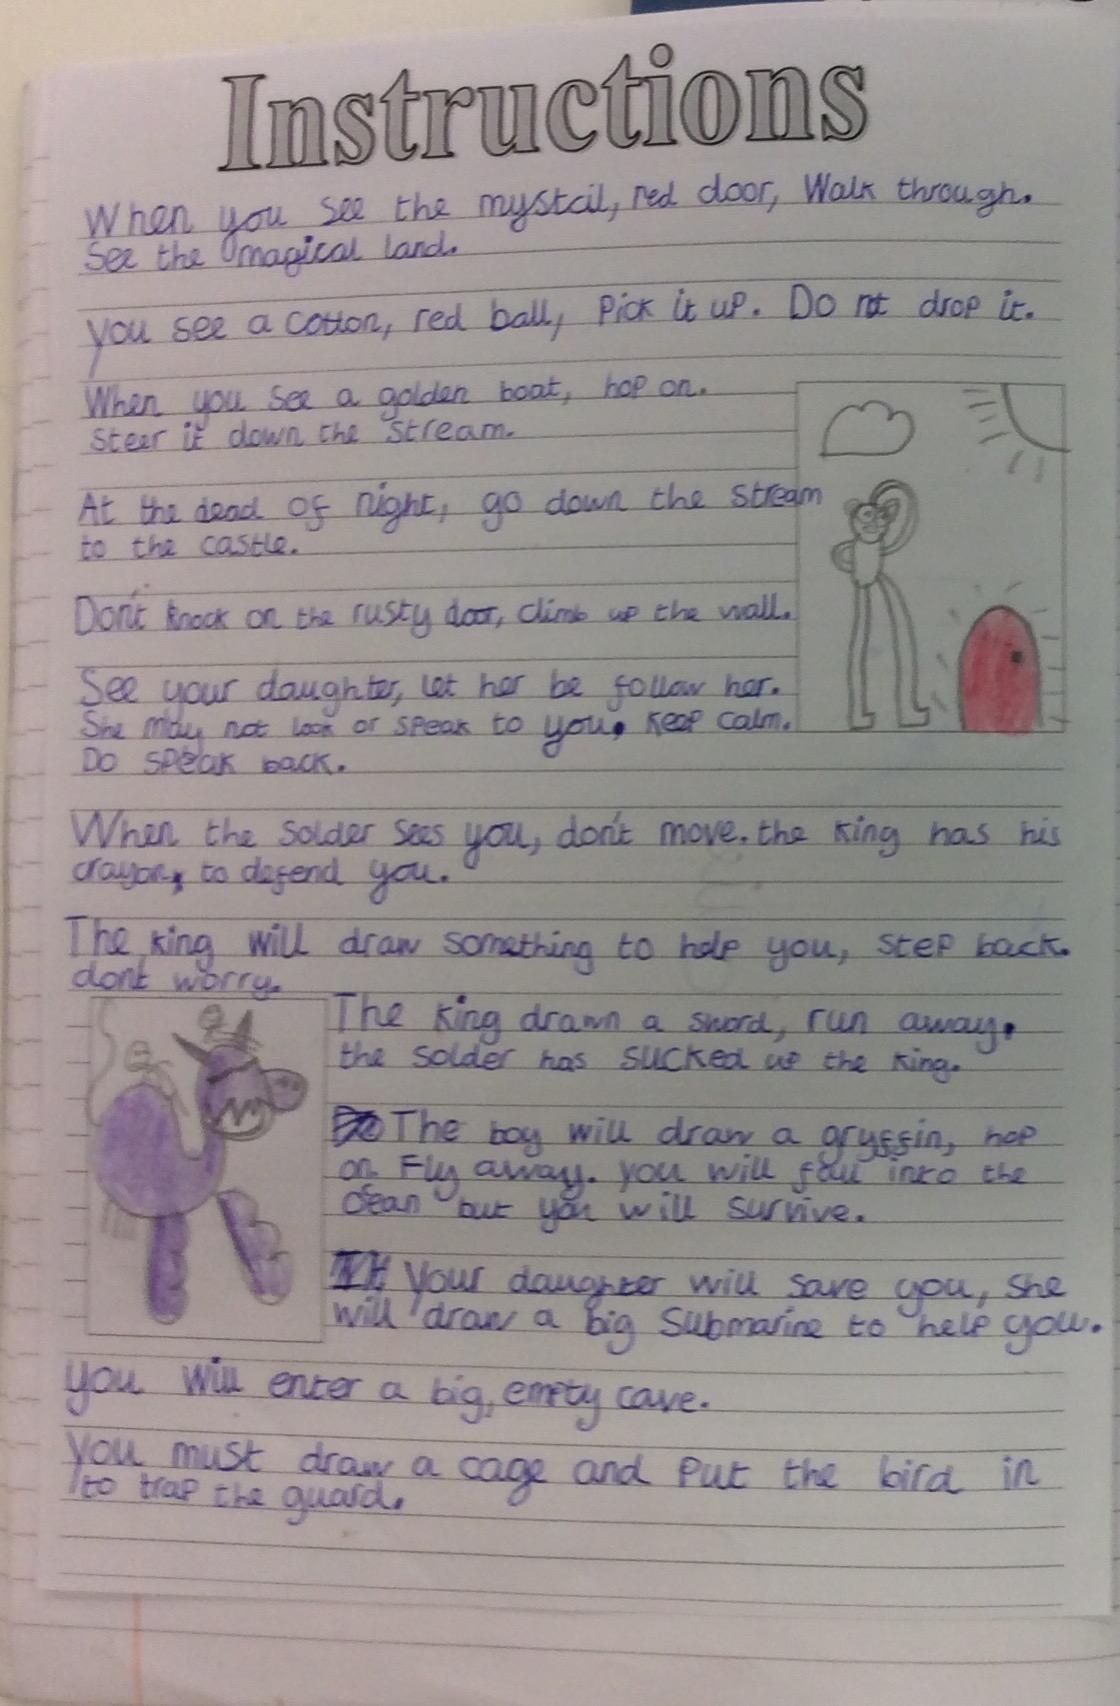 Instructions
When you see the mystail, red door, Walk through.
See the magical land.
you see a cotton, red ball, Pick it up. Do not drop it.
When you See a golden boat, hop on.
Steer it down the stream.
At the dead of night, go down the stream
to the castle.
Don't knock on the rusty door, climb up the wall.
See your daughter, let her be follow her.
She may not look or speak to you, keep calm.
Do speak back.
When the solder sees you, don't move. the king has his
crayon, to defend you.
The king will draw something to help you, step back.
dont worry.
The king drawn a sword, run away.
the solder has sucked up the king.
The boy will draw a gryffin, hop
on Fly away. you will fall into the
but you will survive.
Your daughter will save you, she
will draw a big submarine to help you.
you will enter a big, empty cave.
you must draw a cage and put the bird in
to trap the guard.